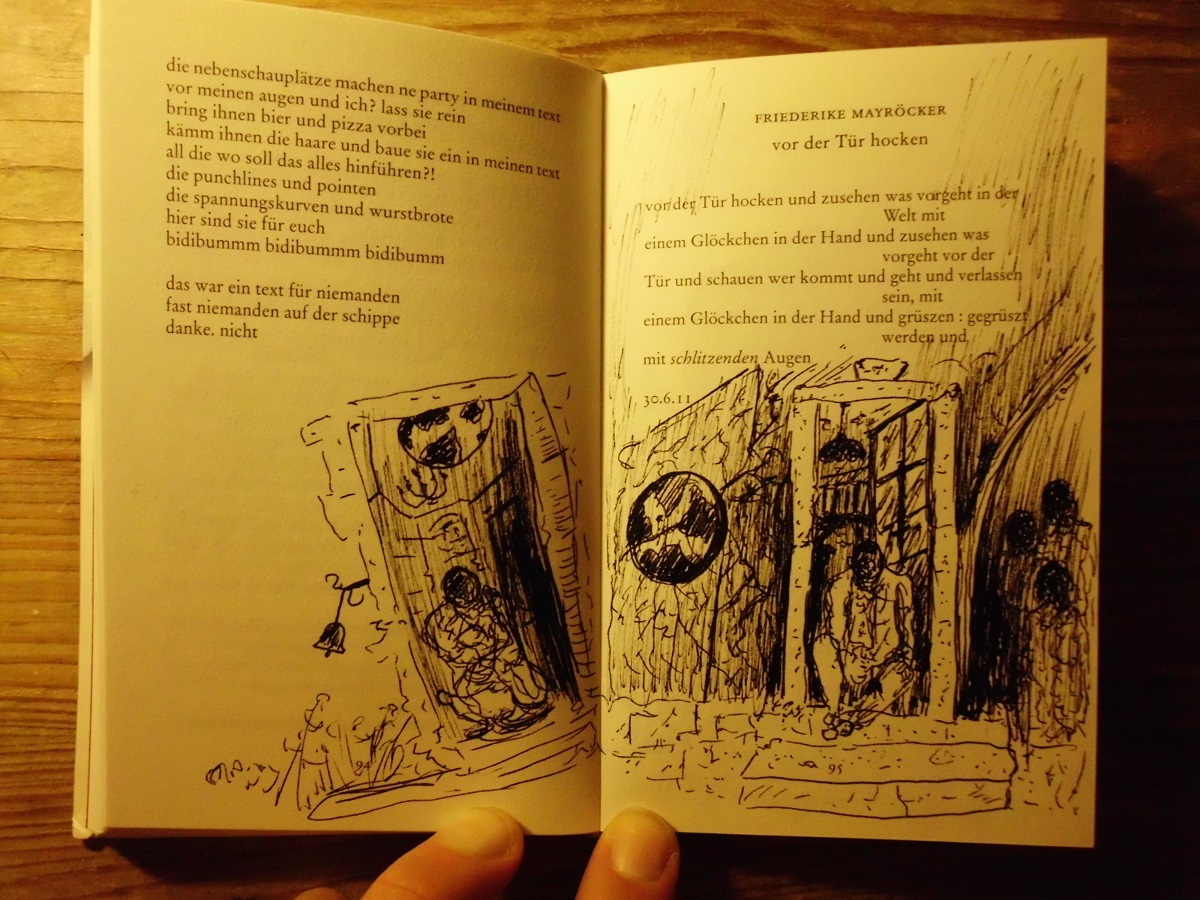 die nebenschauplätze machen ne party in meinem text
vor meinen augen und ich? lass sie rein
bring ihnen bier und pizza vorbei
kämm ihnen die haare und baue sie ein in meinen text
all die wo soll das alles hinführen?!
die punchlines und pointen
die spannungskurven und wurstbrote
hier sind sie für euch
bidibummm bidibummm bidibumm
das war ein text für niemanden
fast niemanden auf der schippe
danke. nicht
94
FRIEDERIKE MAYRÖCKER
vor der Tür hocken
vor der Tür hocken und zusehen was vorgeht in der
Welt mit
einem Glöckchen in der Hand und zusehen was
vorgeht vor der
Tür und schauen wer kommt und geht und verlassen
sein, mit
einem Glöckchen in der Hand und grüszen : gegrüszt
werden und
mit schlitzenden Augen
30.6.11
95